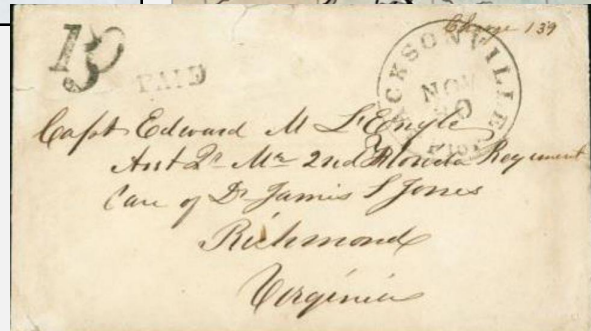 Charge 139
10
PAID
JACKSONVILLE
NOV
Flor
Capt Edward M L'Engle
Asst Qr Mr 2nd Florida Regiment
Care of Dr James S Jones
Richmond
Virginia